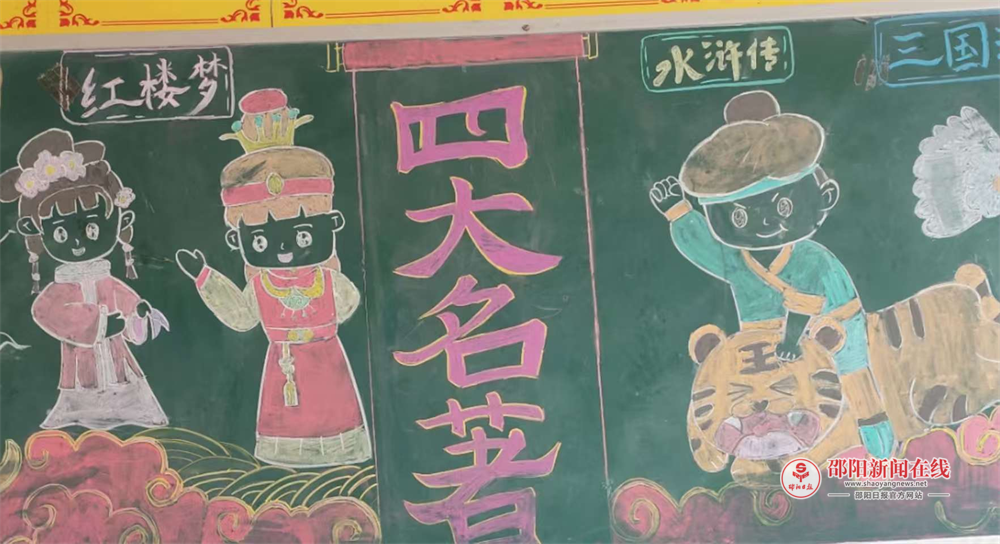 红楼梦
四大名著
水浒传
三国
王
邵阳新闻在线
www.shaoyangnews.net
邵阳日报官方网站
邵阳日报